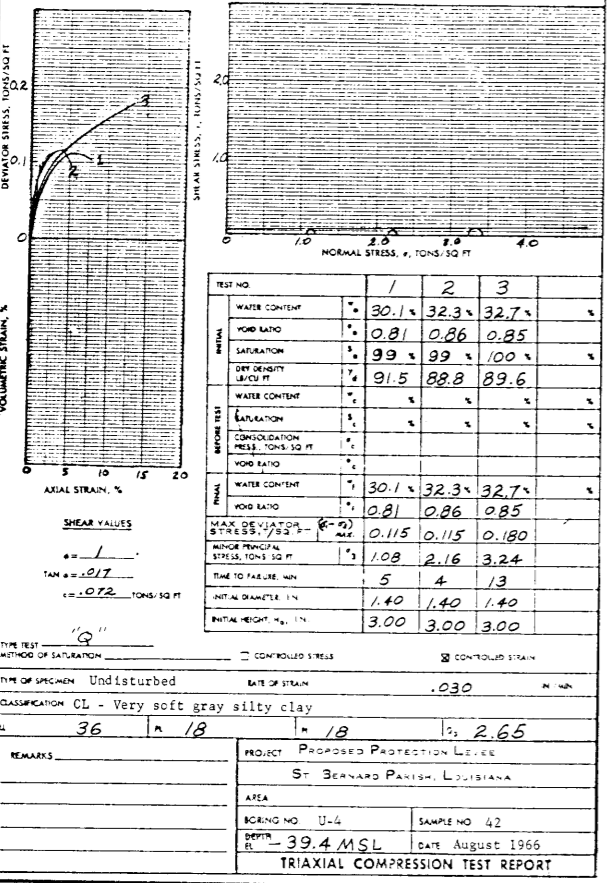 DEVIATOR STRESS, TONS/SQ FT
0.2
0.1
0
3
1
2
VOLUMETRIC STRAIN, %
0 5 10 15 20
AXIAL STRAIN, %
SHEAR STRESS, τ, TONS/SQ FT
2.0
1.0
0 1.0 2.0 3.0 4.0
NORMAL STRESS, σ, TONS/SQ FT
TEST NO. 1 2 3
INITIAL
WATER CONTENT 30.1 % 32.3 % 32.7 % %
VOID RATIO 0.81 0.86 0.85
SATURATION 99 % 99 % 100 % %
DRY DENSITY LB/CU FT 91.5 88.8 89.6
BEFORE TEST
WATER CONTENT % % % %
SATURATION % % % %
CONSOLIDATION PRESS., TONS/SQ FT
VOID RATIO
FINAL
WATER CONTENT 30.1 % 32.3 % 32.7 % %
VOID RATIO 0.81 0.86 0.85
MAX DEVIATOR STRESS, T/SQ FT MAX. 0.115 0.115 0.180
MINOR PRINCIPAL STRESS, TONS SQ FT σ3 1.08 2.16 3.24
TIME TO FAILURE, MIN 5 4 13
INITIAL DIAMETER, IN. 1.40 1.40 1.40
INITIAL HEIGHT, H₀, IN. 3.00 3.00 3.00
SHEAR VALUES
ø = 1 °
TAN ø = .017
c = .072 TONS/SQ FT
TYPE TEST "Q"
METHOD OF SATURATION
CONTROLLED STRESS
☒ CONTROLLED STRAIN
TYPE OF SPECIMEN Undisturbed RATE OF STRAIN .030 IN/MIN
CLASSIFICATION CL - Very soft gray silty clay
LL 36 PL 18 PI 18 Gs 2.65
REMARKS
PROJECT PROPOSED PROTECTION LEVEE
ST BERNARD PARISH, LOUISIANA
AREA
BORING NO. U-4 SAMPLE NO 42
DEPTH EL -39.4 MSL DATE August 1966
TRIAXIAL COMPRESSION TEST REPORT